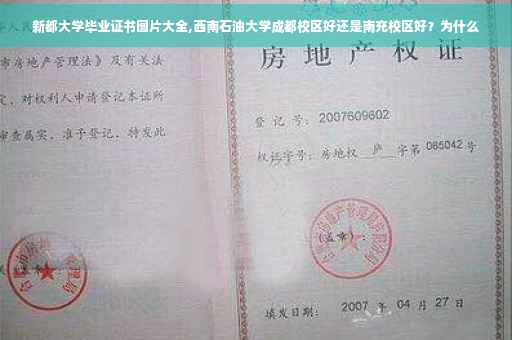 新都大学毕业证书图片大全,西南石油大学成都校区好还是南充校区好？为什么
市房地产管理法》及有关法
定,对权利人申请登记本证所
审查属实,准予登记,特发此
房地产权证
登记号:2007609602
权证字号:房地权 庐 字第 085042 号
(盖章):
填发日期: 2007 年 04 月 27 日